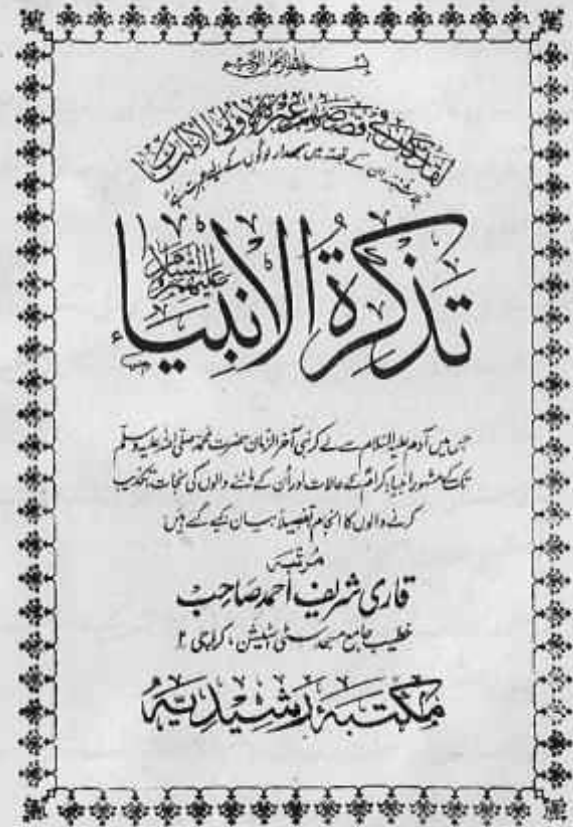 بسم اللہ الرحمن الرحیم
لقد کان فی قصصہم عبرۃ لاولی الالباب
ان کے قصہ میں سمجھدار لوگوں کے لیے
تذکرۃ الانبیاء
علیہم السلام
جس میں آدم علیہ السلام سے لے کر نبی آخر الزمان حضرت محمد صلی اللہ علیہ وسلم
تک کے مشہور انبیاء کرام کے حالات اور اُن کے ماننے والوں کی نجات، تکذیب
کرنے والوں کا انجام تفصیلاً بیان کیے گئے ہیں
مرتبہ
قاری شریف احمد صاحب
خطیب جامع مسجد سٹی اسٹیشن، کراچی ۲
مکتبہ رشیدیہ